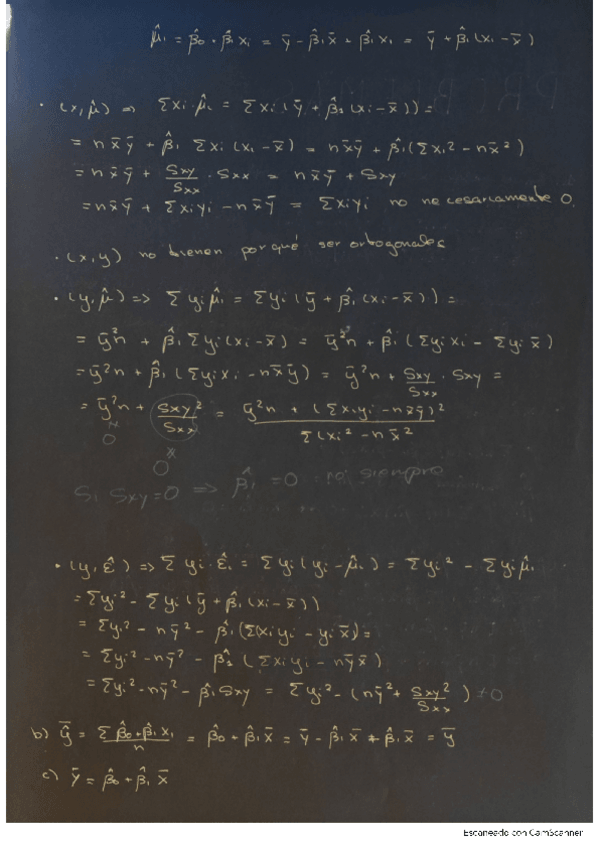 μ̂i = β̂0 + β̂1 xi = ȳ - β̂1 x̄ + β̂1 xi = ȳ + β̂1 (xi - x̄)
• (x, μ̂) ⇒ Σxi · μ̂i = Σxi (ȳ + β̂1 (xi - x̄)) =
= n x̄ ȳ + β̂1 Σxi (xi - x̄) = n x̄ ȳ + β̂1 (Σxi² - n x̄²)
= n x̄ ȳ + Sxy/Sxx · Sxx = n x̄ ȳ + Sxy
= n x̄ ȳ + Σxiyi - n x̄ ȳ = Σxiyi no necesariamente 0.
• (x, y) no tienen porqué ser ortogonales
• (y, μ̂) => Σyi μ̂i = Σyi (ȳ + β̂1 (xi - x̄)) =
= ȳ²n + β̂1 Σyi (xi - x̄) = ȳ²n + β̂1 (Σyi xi - Σyi x̄)
= ȳ²n + β̂1 (Σyi xi - n x̄ ȳ) = ȳ²n + Sxy/Sxx · Sxy =
= ȳ²n + Sxy²/Sxx = ȳ²n + (Σxiyi - n x̄ ȳ)² / Σ(xi² - n x̄²
0
0
Si Sxy = 0 => β̂1 = 0 siempre
• (y, ε̂) => Σyi · ε̂i = Σyi (yi - μ̂i) = Σyi² - Σyi μ̂i
= Σyi² - Σyi (ȳ + β̂1 (xi - x̄))
= Σyi² - n ȳ² - β̂1 (Σ(xi yi - yi x̄) =
= Σyi² - n ȳ² - β̂1 (Σxi yi - n ȳ x̄)
= Σyi² - n ȳ² - β̂1 Sxy = Σyi² - (n ȳ² + Sxy²/Sxx) ≠ 0
b) ŷ̄ = Σ β̂0 + β̂1 xi / n = β̂0 + β̂1 x̄ = ȳ - β̂1 x̄ + β̂1 x̄ = ȳ
c) ȳ = β̂0 + β̂1 x̄
Escaneado con CamScanner